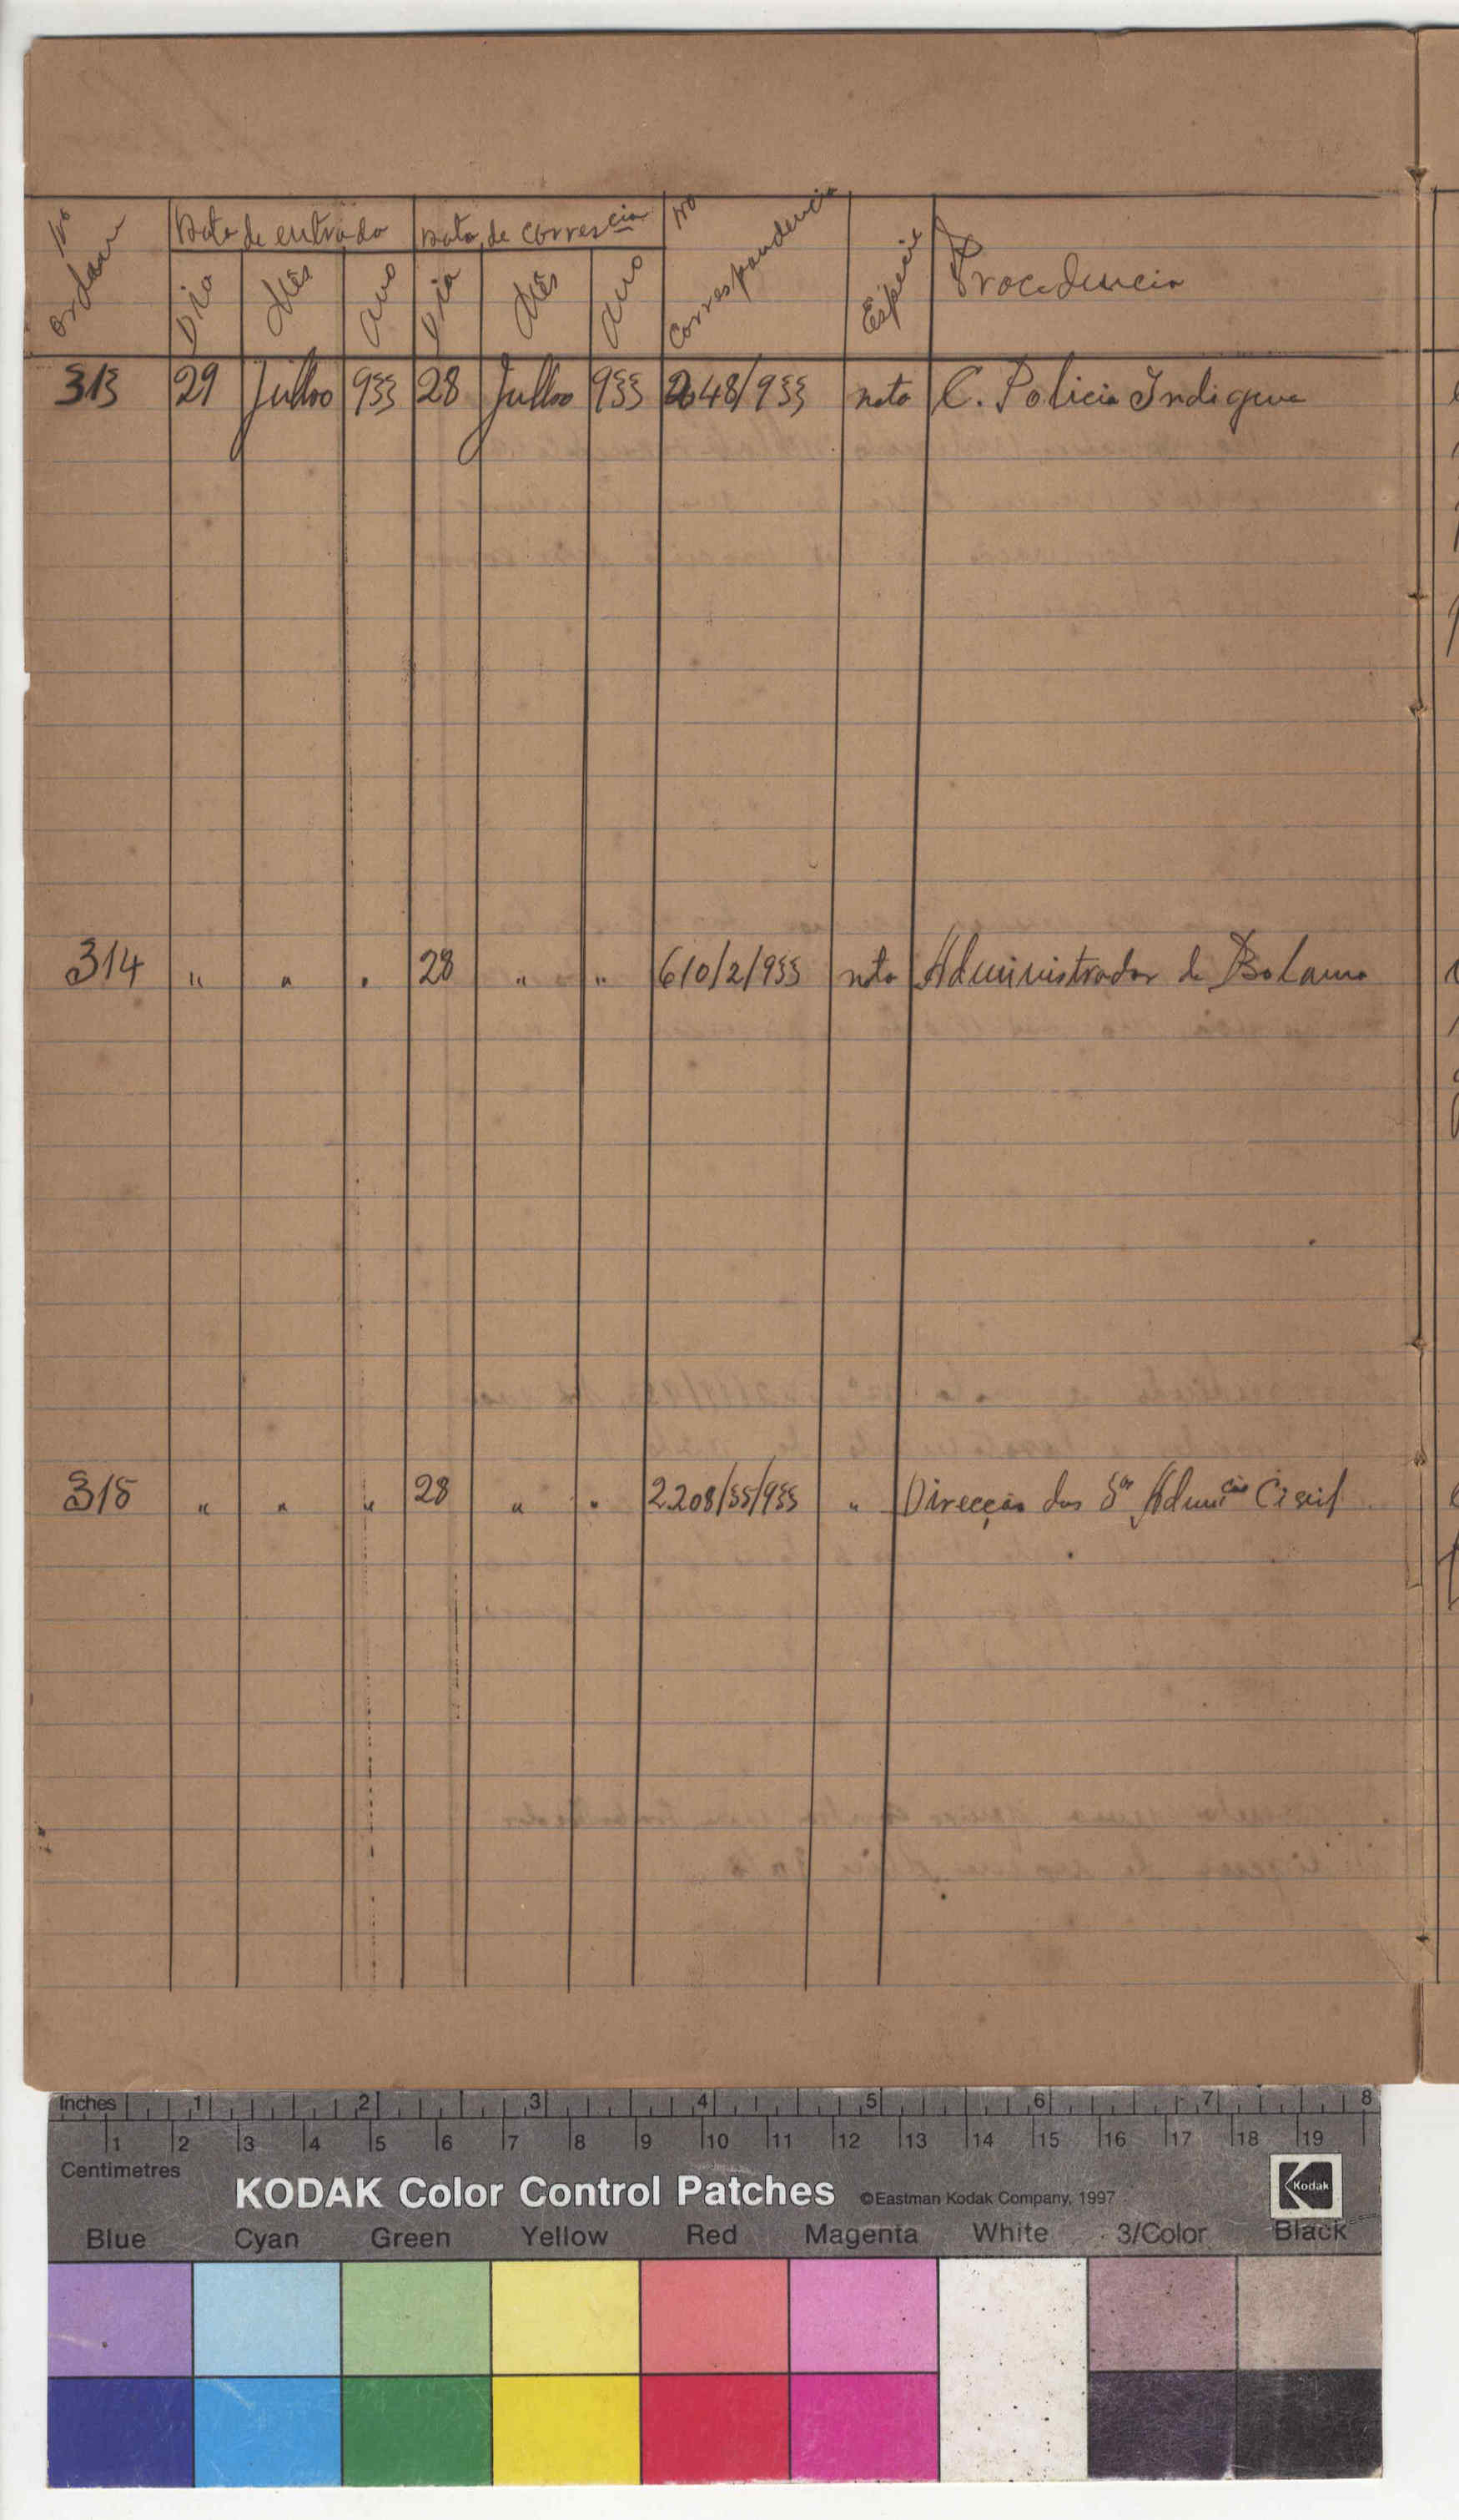 No ordem Data de entrada Data de corres.cia No correspondencia Espécie Procedencia
Dia Mês Ano Dia Mês Ano
313 29 Julho 933 28 Julho 933 2648/933 nota C. Policia Indigena
314 " " " 28 " " 610/2/933 nota Administrador de Bolama
315 " " " 28 " " 2208/55/933 " Direcção dos Sos Admcão Civil
Inches 1 2 3 4 5 6 7 8
1 2 3 4 5 6 7 8 9 10 11 12 13 14 15 16 17 18 19
Centimetres
KODAK Color Control Patches ©Eastman Kodak Company, 1997 Kodak
Blue Cyan Green Yellow Red Magenta White 3/Color Black